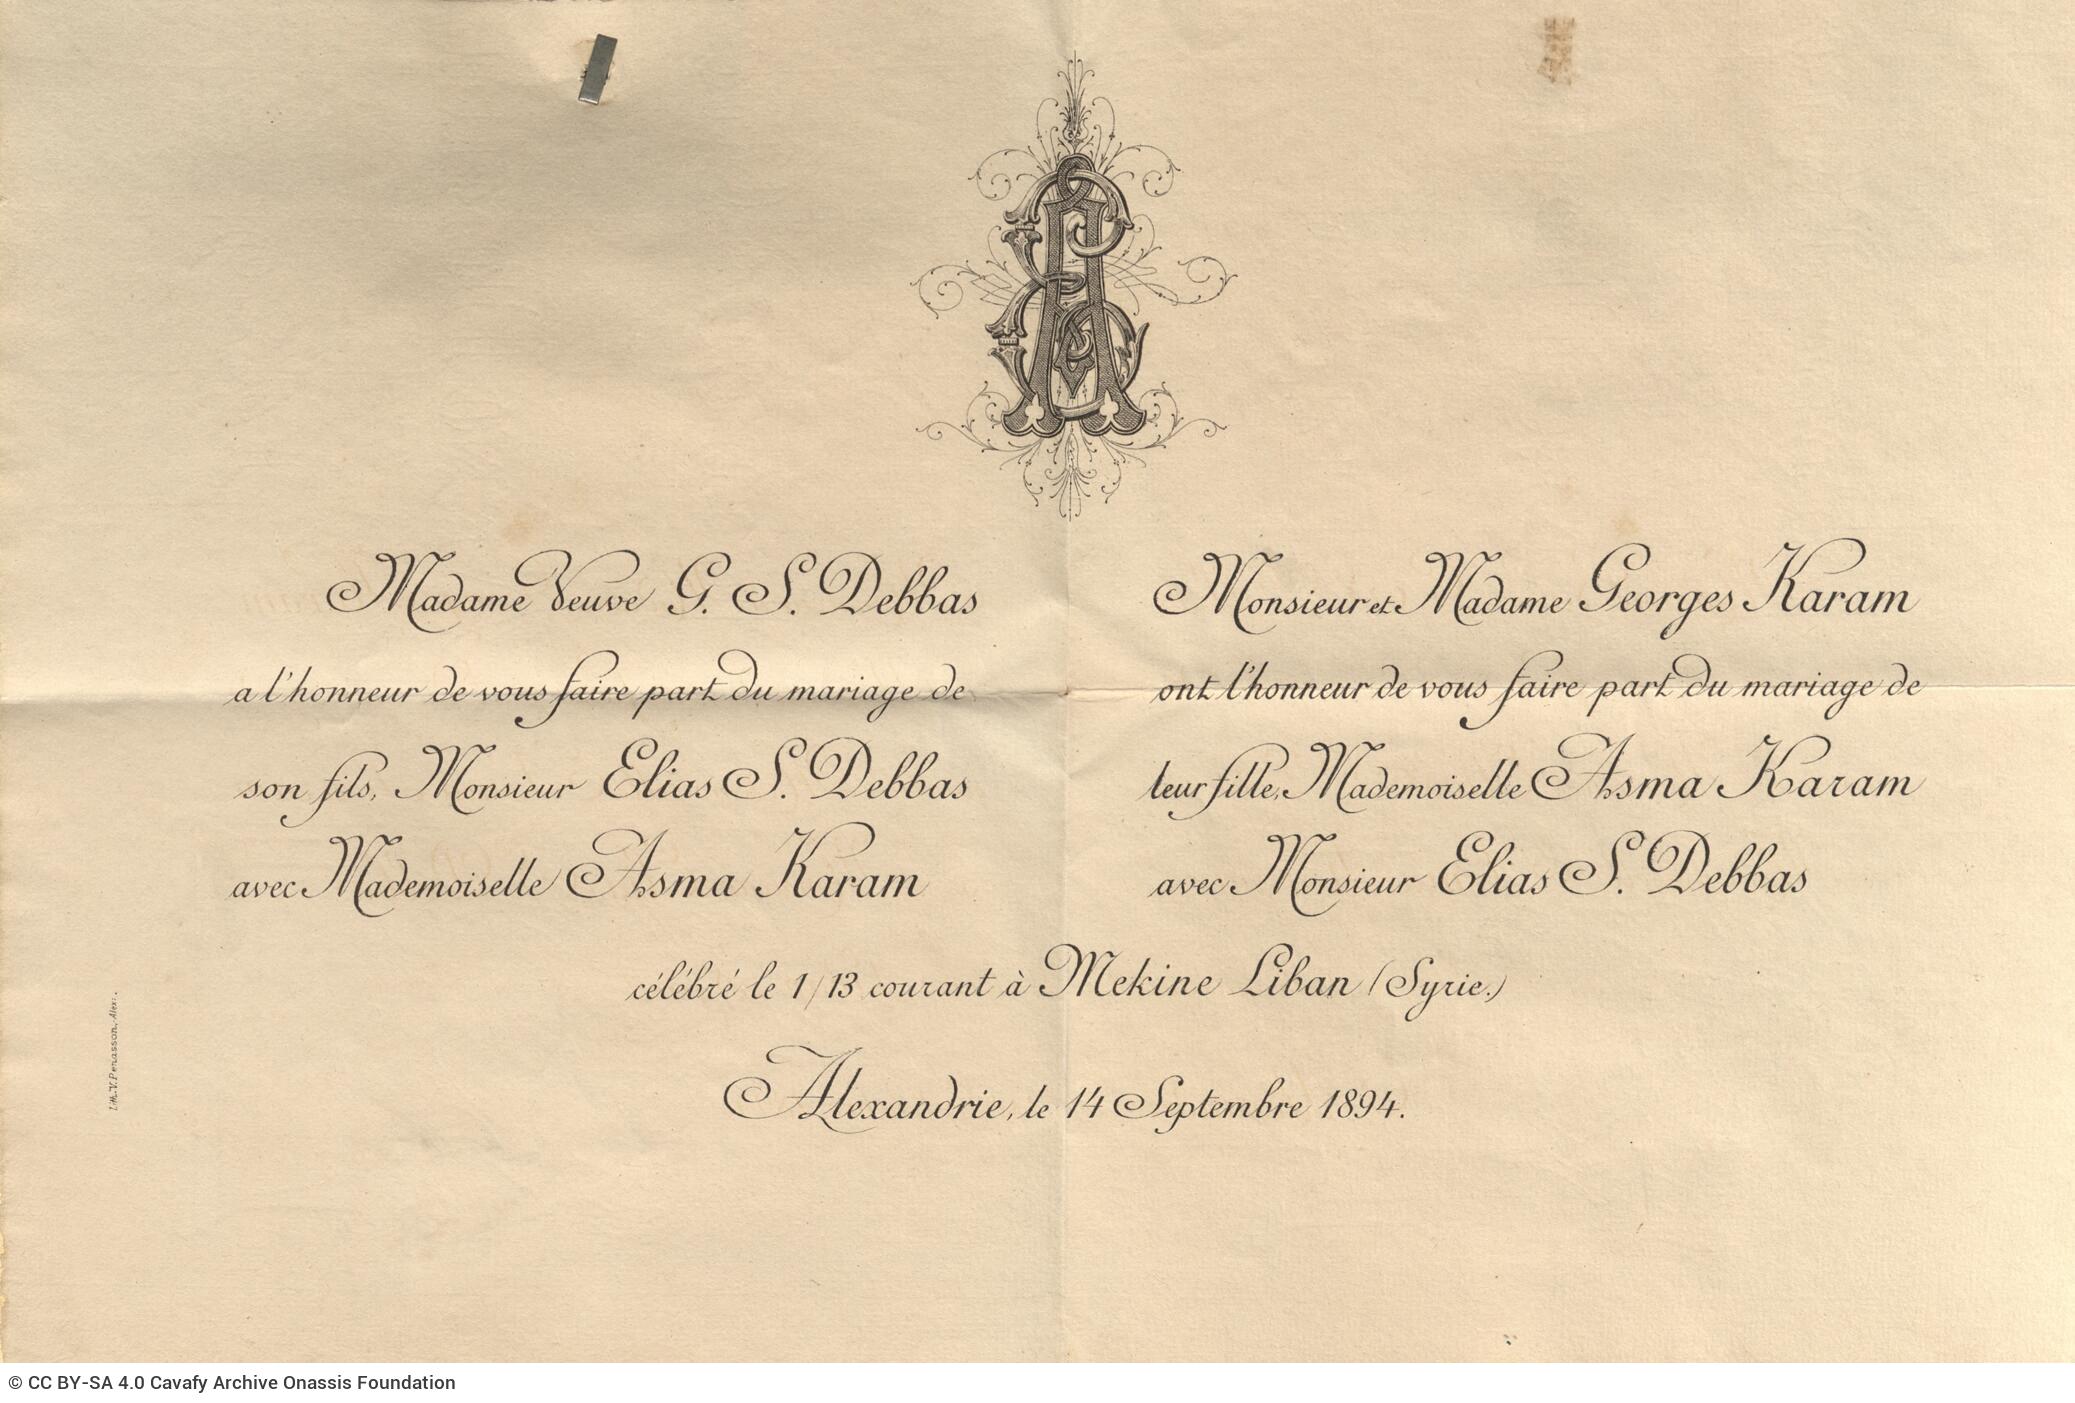 EA
Madame Veuve G. S. Debbas
a l'honneur de vous faire part du mariage de
son fils, Monsieur Elias S. Debbas
avec Mademoiselle Asma Karam
Monsieur et Madame Georges Karam
ont l'honneur de vous faire part du mariage de
leur fille, Mademoiselle Asma Karam
avec Monsieur Elias S. Debbas
célébré le 1/13 courant à Mekine Liban (Syrie.)
Alexandrie, le 14 Septembre 1894.
Lith. V. Penasson, Alex.
© CC BY-SA 4.0 Cavafy Archive Onassis Foundation